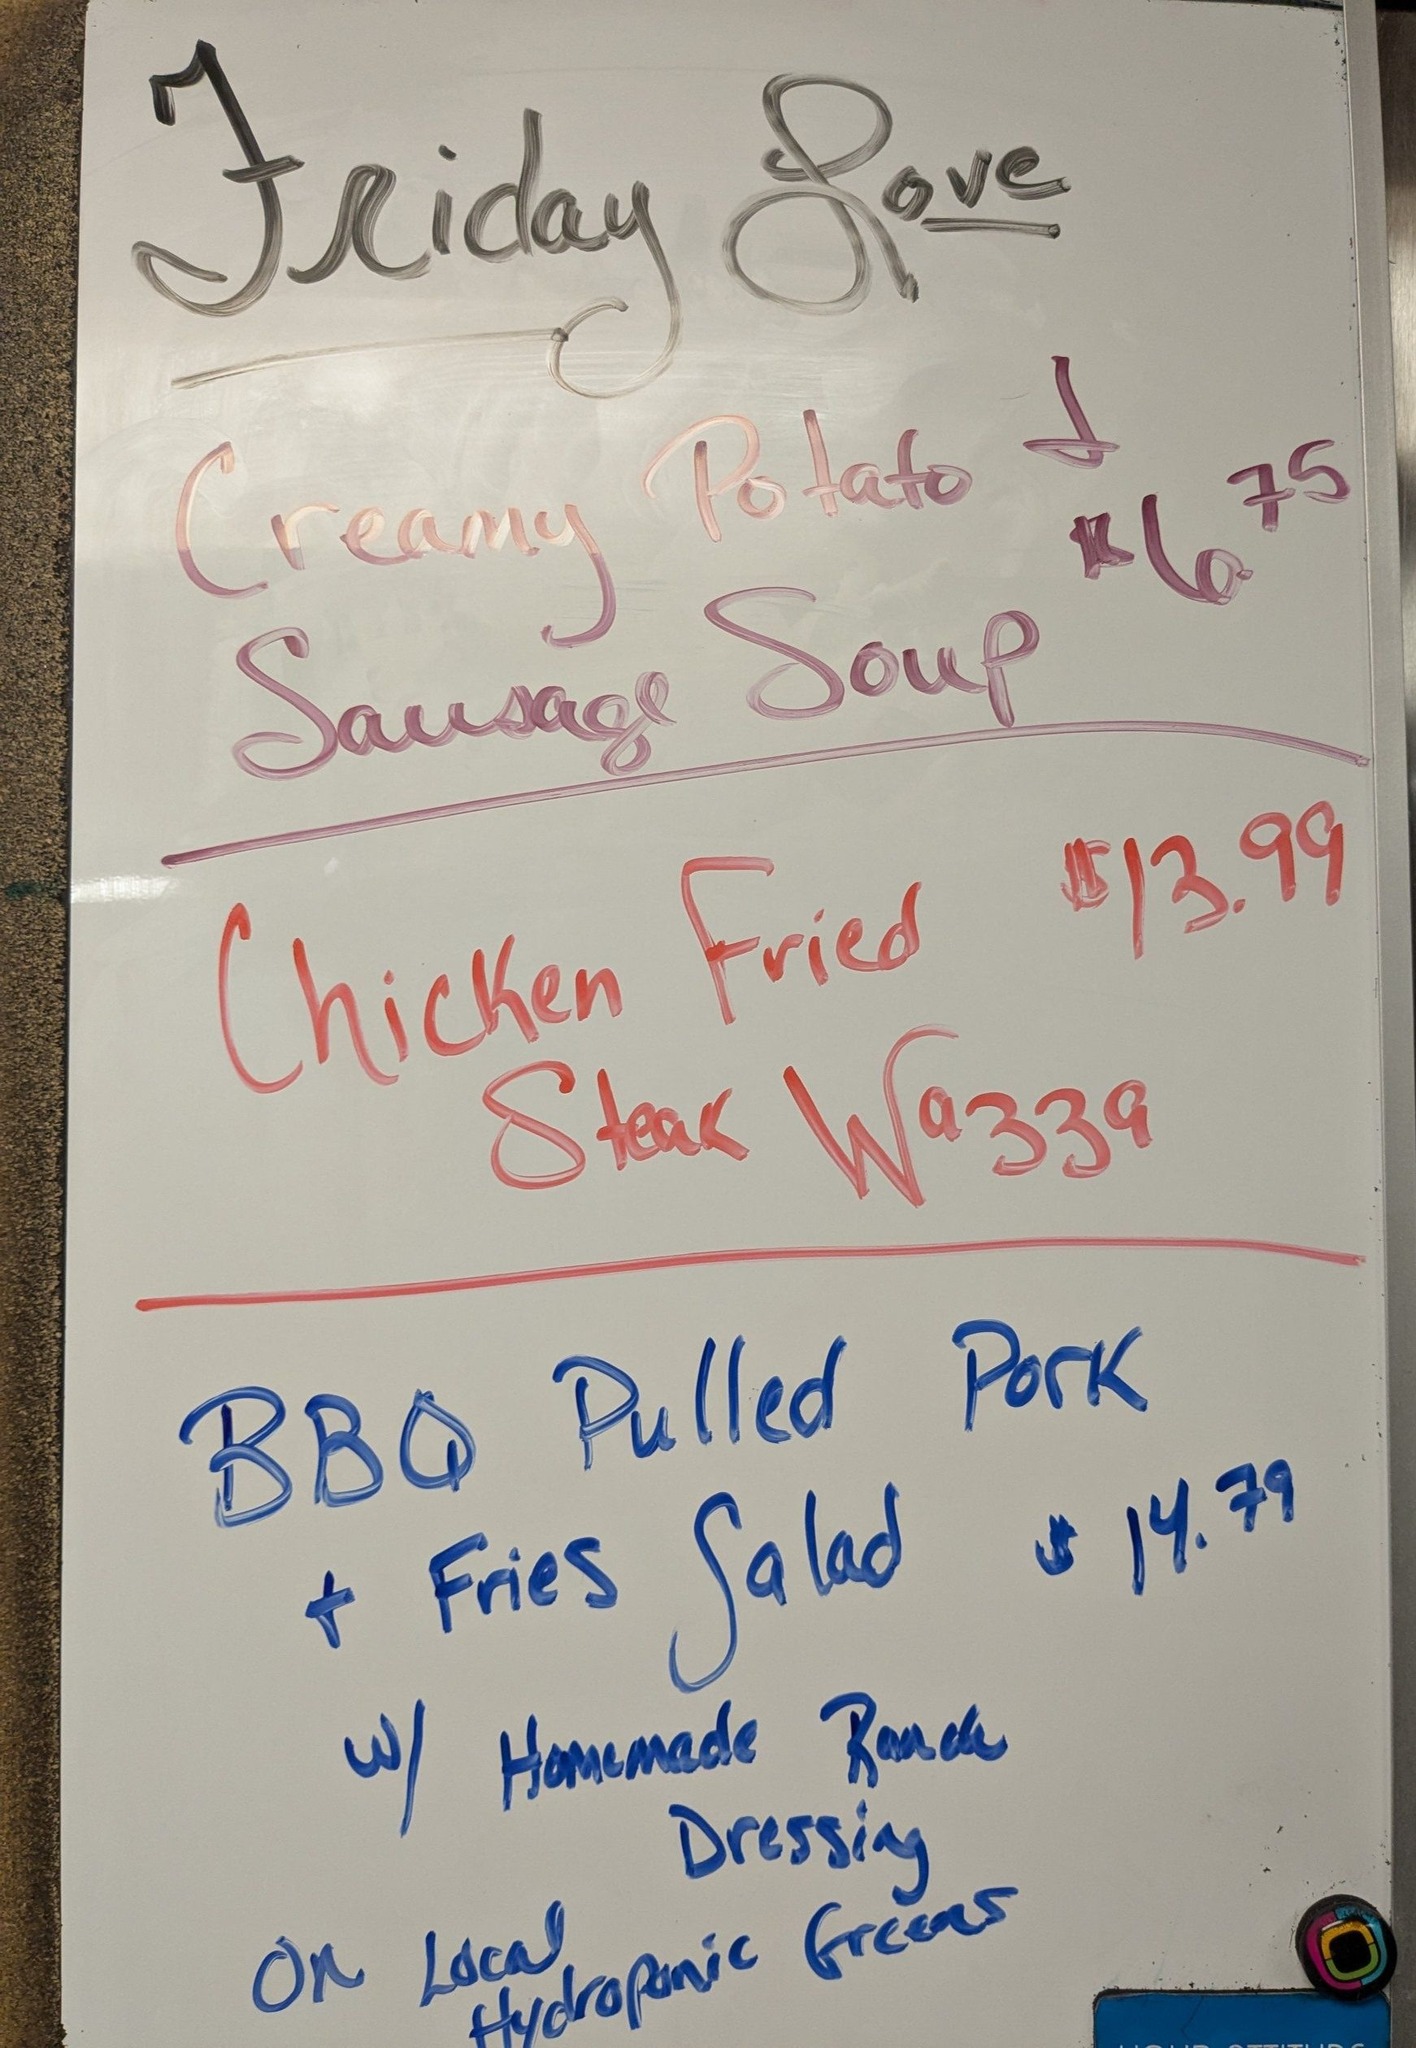 Friday Love
Creamy Potato &
$6.75
Sausage Soup
Chicken Fried $13.99
Steak Wazza
BBQ Pulled Pork
+ Fries Salad $14.79
w/ Homemade Ranch
Dressing
On Local
Hydroponic Greens
YOUR ATTITUDE